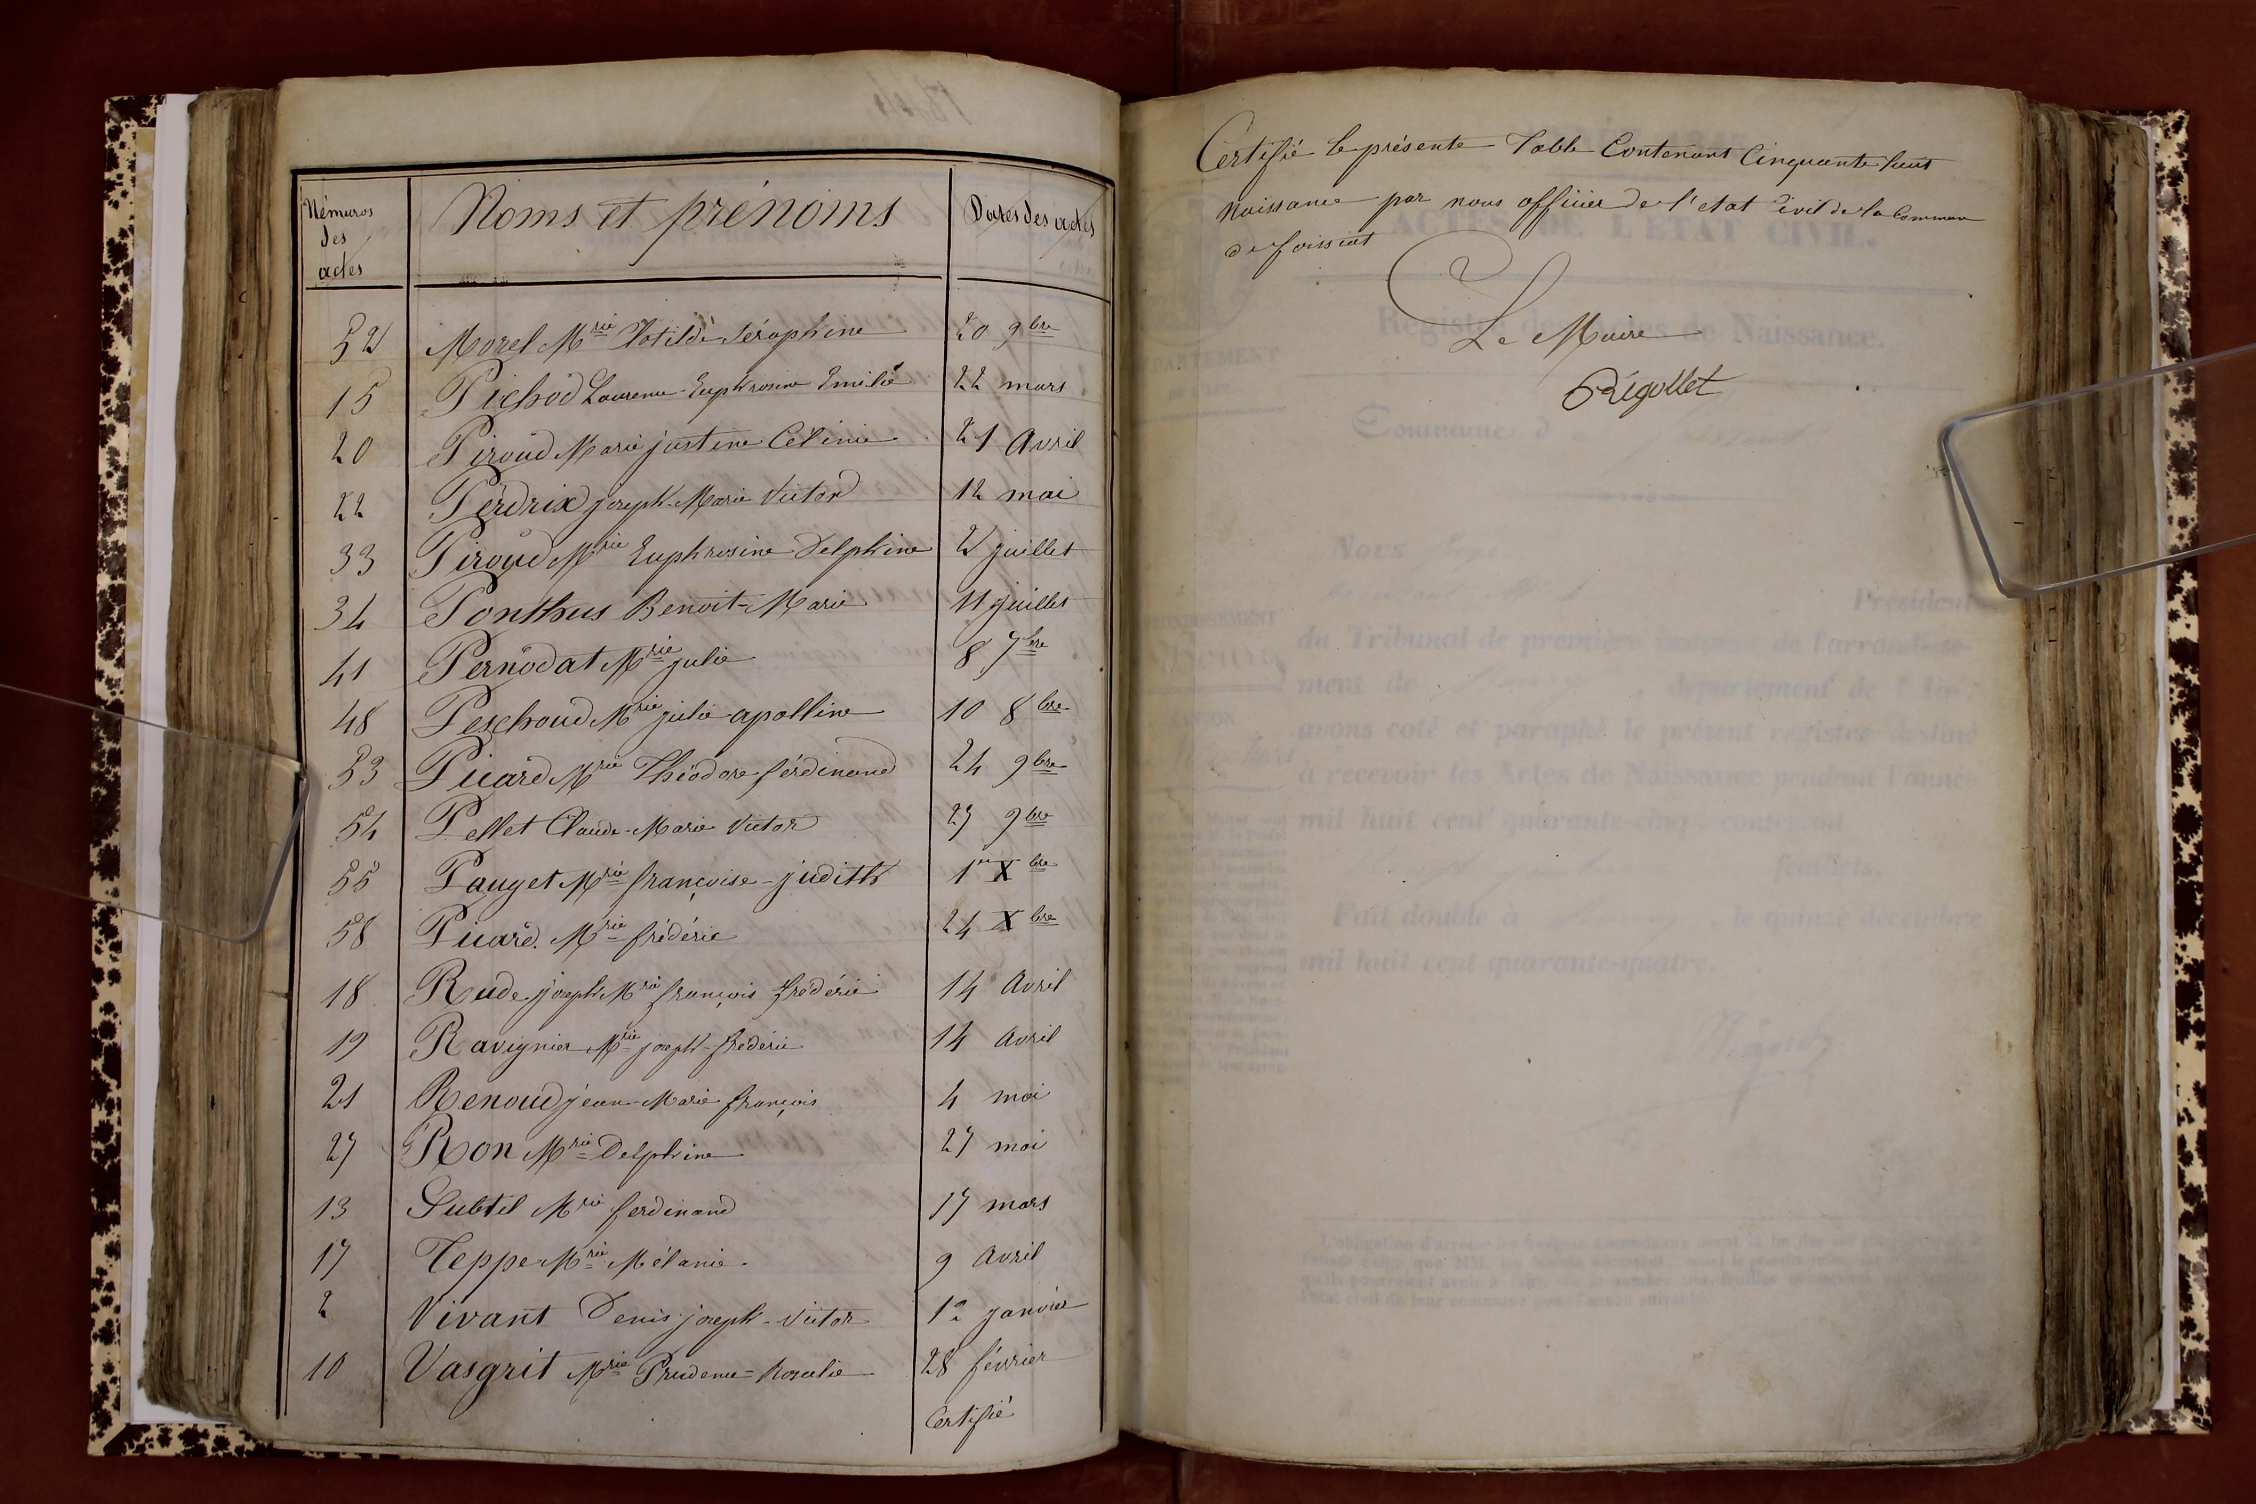 Némuros des actes
Noms et prénoms
Dates des actes
52 Morel Mrie Clotilde Séraphine 20 9bre
15 Pichod Laurence Euphrosine Emilie 22 mars
20 Piroud Marie justine Célinie 21 Avril
22 Perdrix joseph-Marie Victor 12 mai
33 Piroud Mrie Euphrosine Delphine 2 juillet
34 Ponthus Benoit-Marie 11 juillet
41 Pernodat Mrie julie 8 7bre
48 Peschoud Mrie julie apolline 10 8bre
53 Picard Mrie Théodore ferdinand 24 9bre
54 Pellet Claude-Marie Victor 27 9bre
55 Pauget Mrie françoise-judith 1er Xbre
58 Picard. Mrie frédéric 24 Xbre
18 Rude joseph Mrie françois frédéric 14 Avril
19 Ravignier Mrie joseph-frédéric 14 Avril
21 Renoud jean-Marie françois 4 mai
27 Ron Mrie Delphine 27 mai
13 Subtil Mrie ferdinand 17 mars
17 Teppe Mrie Mélanie. 9 Avril
2 Vivant Denis joseph-Victor janvier
10 Vasgrit Mrie Prudence=Rosalie 28 février
Certifié
Certifié le présente Table Contenant Cinquante huit
Naissance par nous officier de l'etat Civil de la Commune
de foissiat
Le Maire
Rigollet
ACTES DE L'ÉTAT CIVIL.
de Naissance.
Commune d
Nous
Président
du Tribunal de première de l'arrondisse-
ment de département de l'Ain,
avons coté et paraphé le présent registre destiné
à recevoir les Actes de Naissance pendant l'année
mil huit cent quarante-cinq
feuillets.
Fait double à le quinze décembre
mil huit cent quarante-quatre.